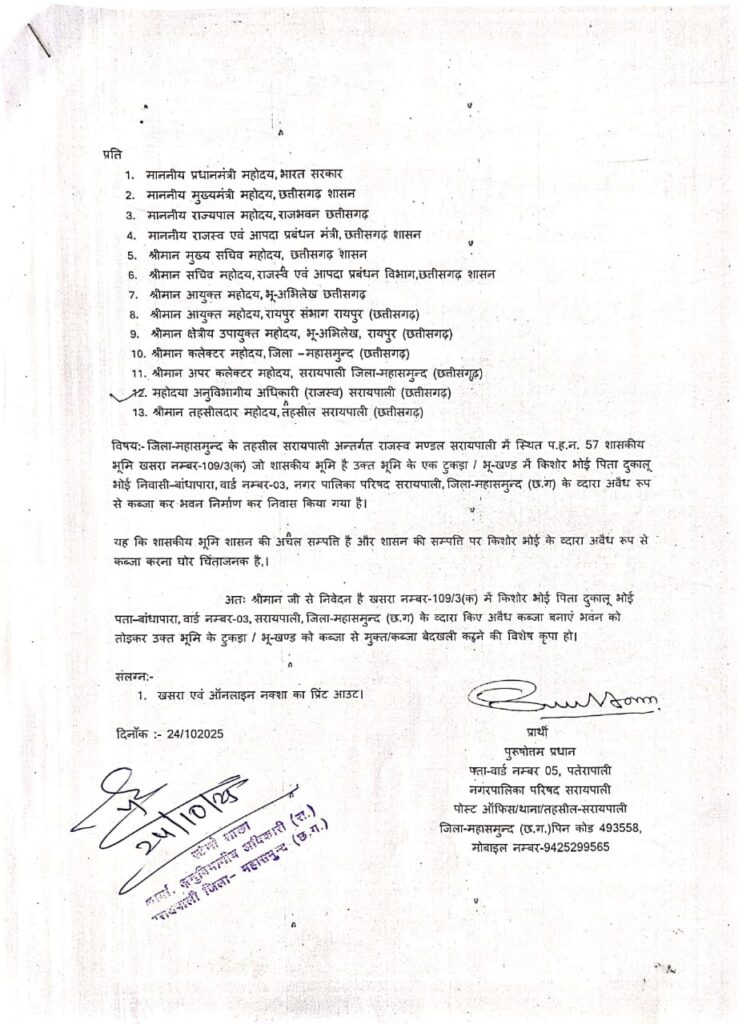 प्रति
1. माननीय प्रधानमंत्री महोदय, भारत सरकार
2. माननीय मुख्यमंत्री महोदय, छत्तीसगढ़ शासन
3. माननीय राज्यपाल महोदय, राजभवन छत्तीसगढ़
4. माननीय राजस्व एवं आपदा प्रबंधन मंत्री, छत्तीसगढ़ शासन
5. श्रीमान मुख्य सचिव महोदय, छत्तीसगढ़ शासन
6. श्रीमान सचिव महोदय, राजस्व एवं आपदा प्रबंधन विभाग,छत्तीसगढ़ शासन
7. श्रीमान आयुक्त महोदय, भू-अभिलेख छत्तीसगढ़
8. श्रीमान आयुक्त महोदय, रायपुर संभाग रायपुर (छत्तीसगढ़)
9. श्रीमान क्षेत्रीय उपायुक्त महोदय, भू-अभिलेख, रायपुर (छत्तीसगढ़)
10. श्रीमान कलेक्टर महोदय, जिला –महासमुन्द (छत्तीसगढ़)
11. श्रीमान अपर कलेक्टर महोदय, सरायपाली जिला-महासमुन्द (छत्तीसगढ़)
12. महोदया अनुविभागीय अधिकारी (राजस्व) सरायपाली (छत्तीसगढ़)
13. श्रीमान तहसीलदार महोदय, तहसील सरायपाली (छत्तीसगढ़)
विषय:- जिला-महासमुन्द के तहसील सरायपाली अन्तर्गत राजस्व मण्डल सरायपाली में स्थित प.ह.न. 57 शासकीय
भूमि खसरा नम्बर-109/3(क) जो शासकीय भूमि है उक्त भूमि के एक टुकड़ा / भू-खण्ड में किशोर भोई पिता दुकालू
भोई निवासी–बांधापारा, वार्ड नम्बर-03, नगर पालिका परिषद सरायपाली, जिला-महासमुन्द (छ.ग) के व्दारा अवैध रूप
से कब्जा कर भवन निर्माण कर निवास किया गया है।
यह कि शासकीय भूमि शासन की अचल सम्पति है और शासन की सम्पत्ति पर किशोर भोई के व्दारा अवैध रूप से
कब्जा करना घोर चिंताजनक है,।
अतः श्रीमान जी से निवेदन है खसरा नम्बर-109/3(क) में किशोर भोई पिता दुकालू भोई
पता–बांधापारा, वार्ड नम्बर-03, सरायपाली, जिला-महासमुन्द (छ.ग) के व्दारा किए अवैध कब्जा बनाएं भवन को
तोड़कर उक्त भूमि के टुकड़ा / भू-खण्ड को कब्जा से मुक्त/कब्जा बेदखली करने की विशेष कृपा हो।
संलग्न:-
1. खसरा एवं ऑनलाइन नक्शा का प्रिंट आउट।
दिनाँक :- 24/102025
प्रार्थी
पुरूषोत्तम प्रधान
पता-वार्ड नम्बर 05, पतेरापाली
नगरपालिका परिषद सरायपाली
पोस्ट ऑफिस/थाना/तहसील-सरायपाली
जिला-महासमुन्द (छ.ग.)पिन कोड 493558,
मोबाइल नम्बर-9425299565
24/10/25
शाखा
अनुविभागीय अधिकारी (रा.)
सरायपाली जिला- महासमुन्द (छ.ग.)